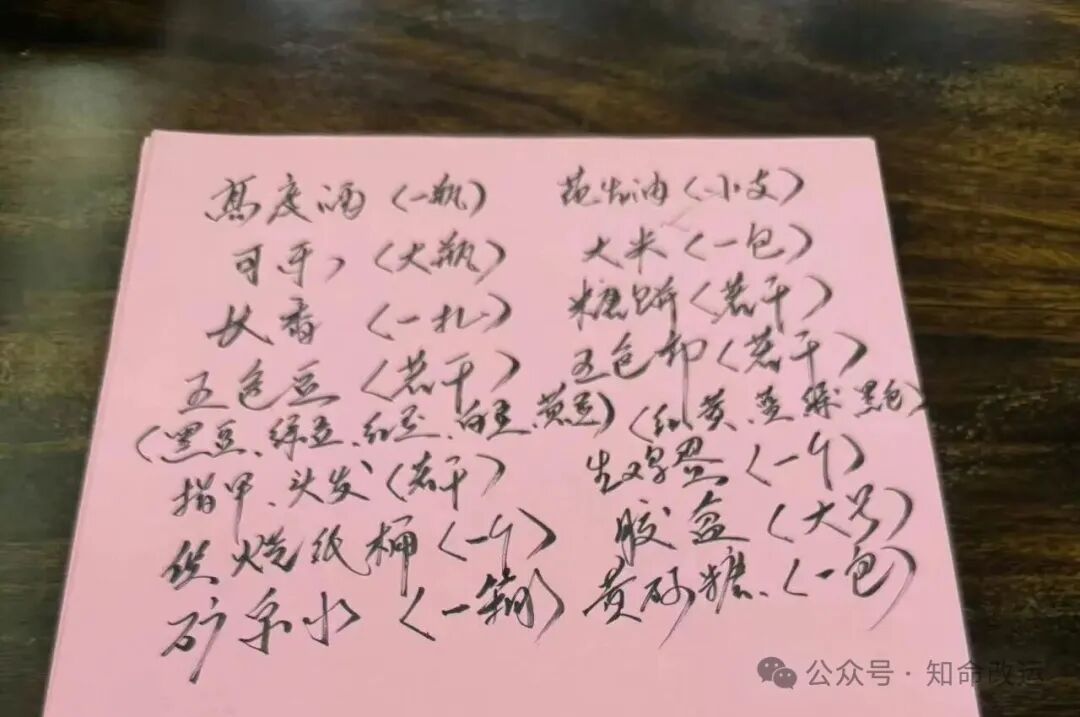 高度酒（一瓶） 花生油（小支）
可乐（大瓶） 大米（一包）
香（一扎） 糖饼（若干）
五色豆（若干） 五色布（若干）
（黑豆、绿豆、红豆、白豆、黄豆）（红、黄、蓝、绿、黑色）
指甲、头发（若干） 生鸡蛋（一个）
铁烧纸桶（一个） 胶盆（大号）
矿泉水（一箱） 黄砂糖、（一包）
公众号·知命改运